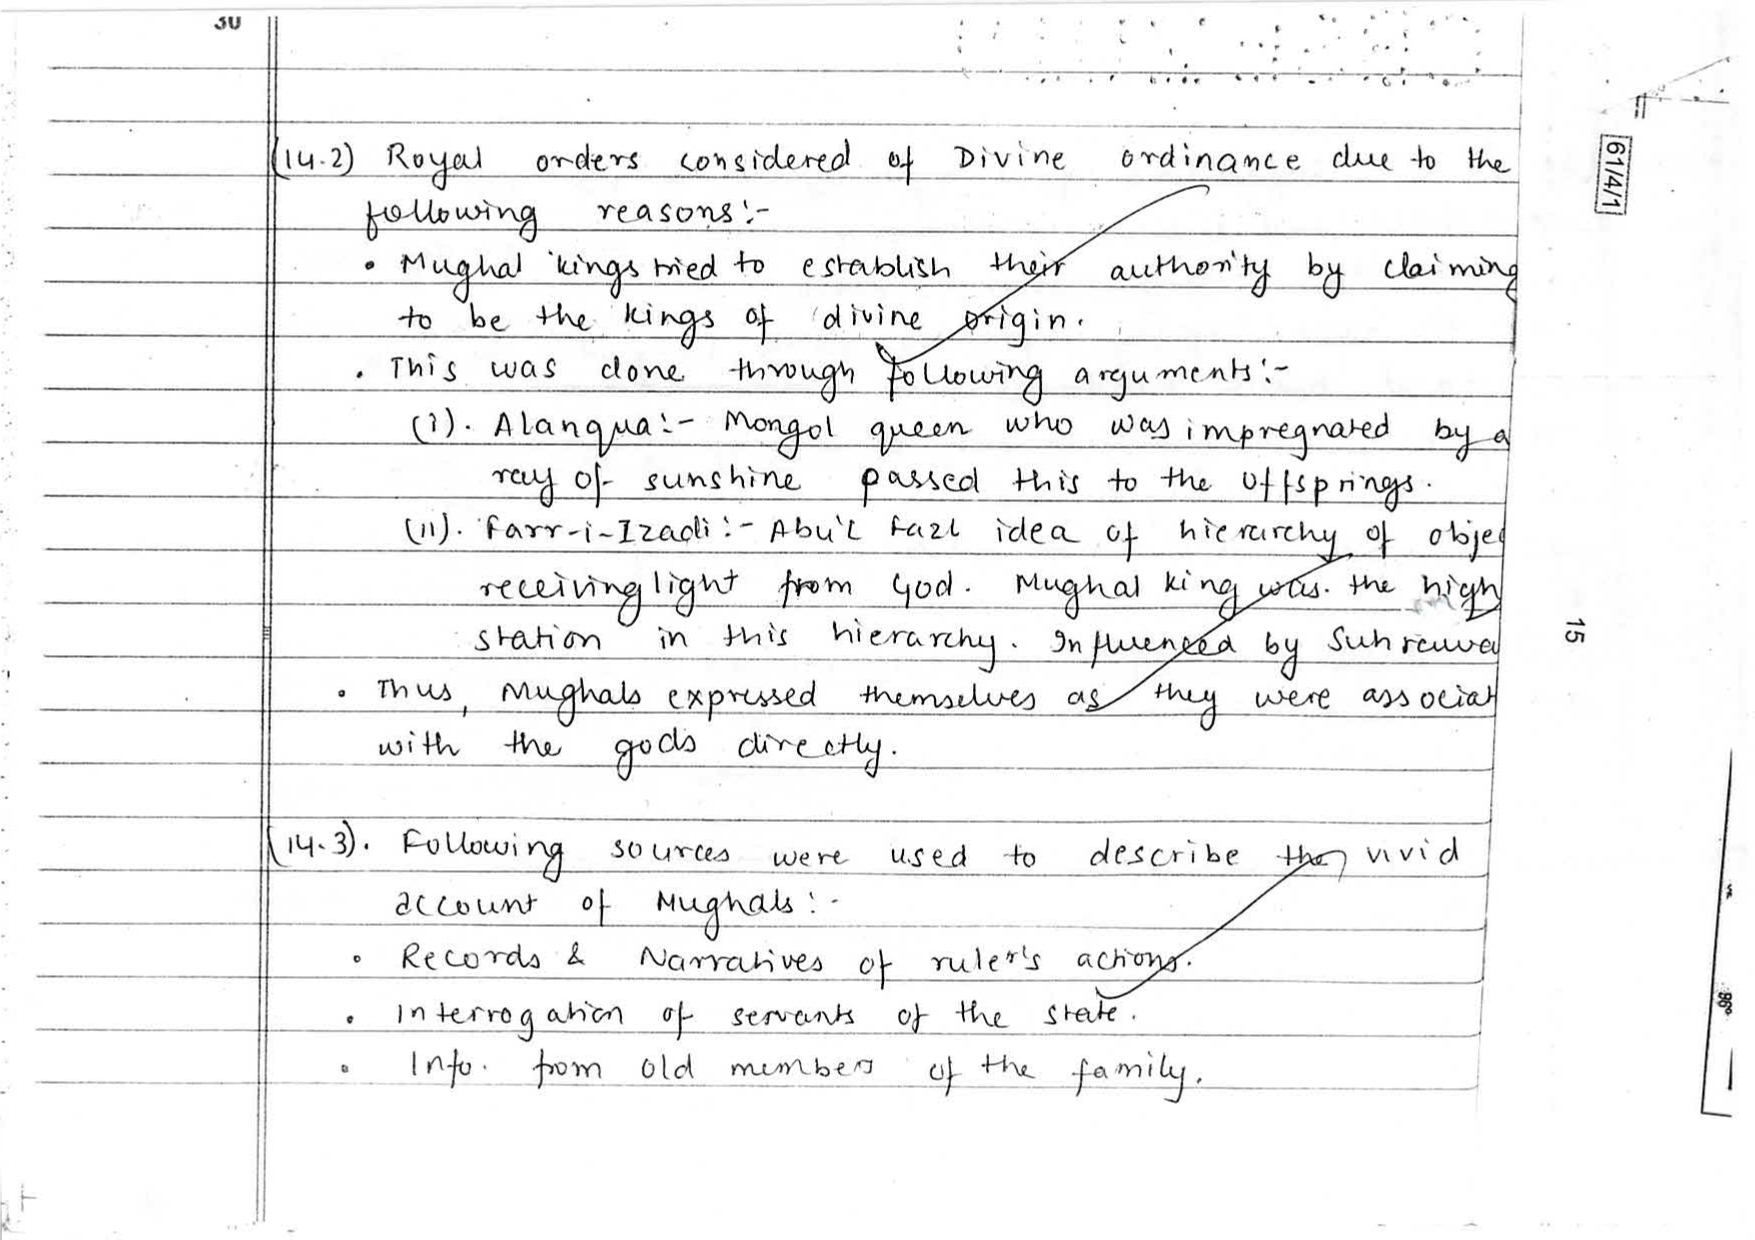 30
(14.2) Royal orders considered of Divine ordinance due to the
following reasons:-
• Mughal kings tried to establish their authority by claiming
to be the kings of divine origin.
• This was done through following arguments:-
(i). Alanqua:- Mongol queen who was impregnated by a
ray of sunshine passed this to the offsprings.
(ii). Farr-i-Izadi:- Abu'l Fazl idea of hierarchy of objec
receiving light from God. Mughal king was the high
station in this hierarchy. Influenced by Suhrawa
• Thus, Mughals expressed themselves as they were associat
with the gods directly.
(14.3). Following sources were used to describe the vivid
account of Mughals:-
• Records & Narratives of ruler's actions.
• Interrogation of servants of the state.
• Info. from old members of the family.
61/4/1
15